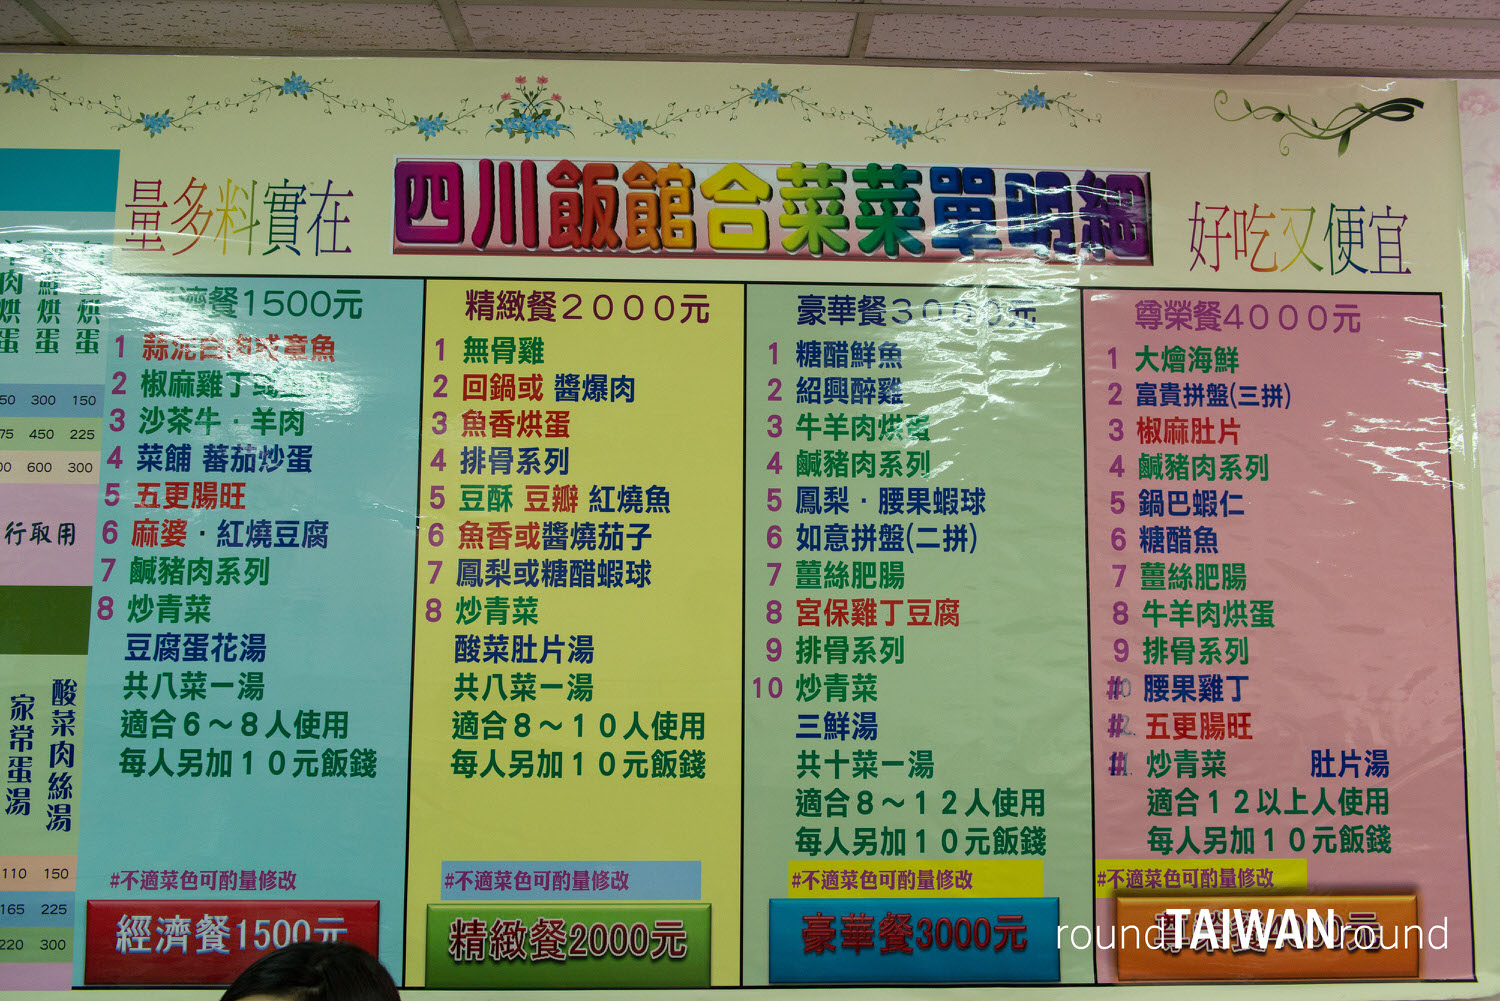 量多料實在
四川飯館合菜菜單明細
好吃又便宜
肉烘蛋
烘蛋
烘蛋
50 300 150
75 450 225
00 600 300
行取用
酸菜肉絲湯
家常蛋湯
110 150
165 225
220 300
濟餐1500元
1 蒜泥白肉或章魚
2 椒麻雞丁或
3 沙茶牛．羊肉
4 菜餔 蕃茄炒蛋
5 五更腸旺
6 麻婆．紅燒豆腐
7 鹹豬肉系列
8 炒青菜
豆腐蛋花湯
共八菜一湯
適合6～8人使用
每人另加10元飯錢
#不適菜色可酌量修改
經濟餐1500元
精緻餐2000元
1 無骨雞
2 回鍋或 醬爆肉
3 魚香烘蛋
4 排骨系列
5 豆酥 豆瓣 紅燒魚
6 魚香或醬燒茄子
7 鳳梨或糖醋蝦球
8 炒青菜
酸菜肚片湯
共八菜一湯
適合8～10人使用
每人另加10元飯錢
#不適菜色可酌量修改
精緻餐2000元
豪華餐3000元
1 糖醋鮮魚
2 紹興醉雞
3 牛羊肉烘蛋
4 鹹豬肉系列
5 鳳梨．腰果蝦球
6 如意拼盤(二拼)
7 薑絲肥腸
8 宮保雞丁豆腐
9 排骨系列
10 炒青菜
三鮮湯
共十菜一湯
適合8～12人使用
每人另加10元飯錢
#不適菜色可酌量修改
豪華餐3000元
尊榮餐4000元
1 大燴海鮮
2 富貴拼盤(三拼)
3 椒麻肚片
4 鹹豬肉系列
5 鍋巴蝦仁
6 糖醋魚
7 薑絲肥腸
8 牛羊肉烘蛋
9 排骨系列
腰果雞丁
五更腸旺
炒青菜 肚片湯
適合12以上人使用
每人另加10元飯錢
#不適菜色可酌量修改
roundTAIWANround